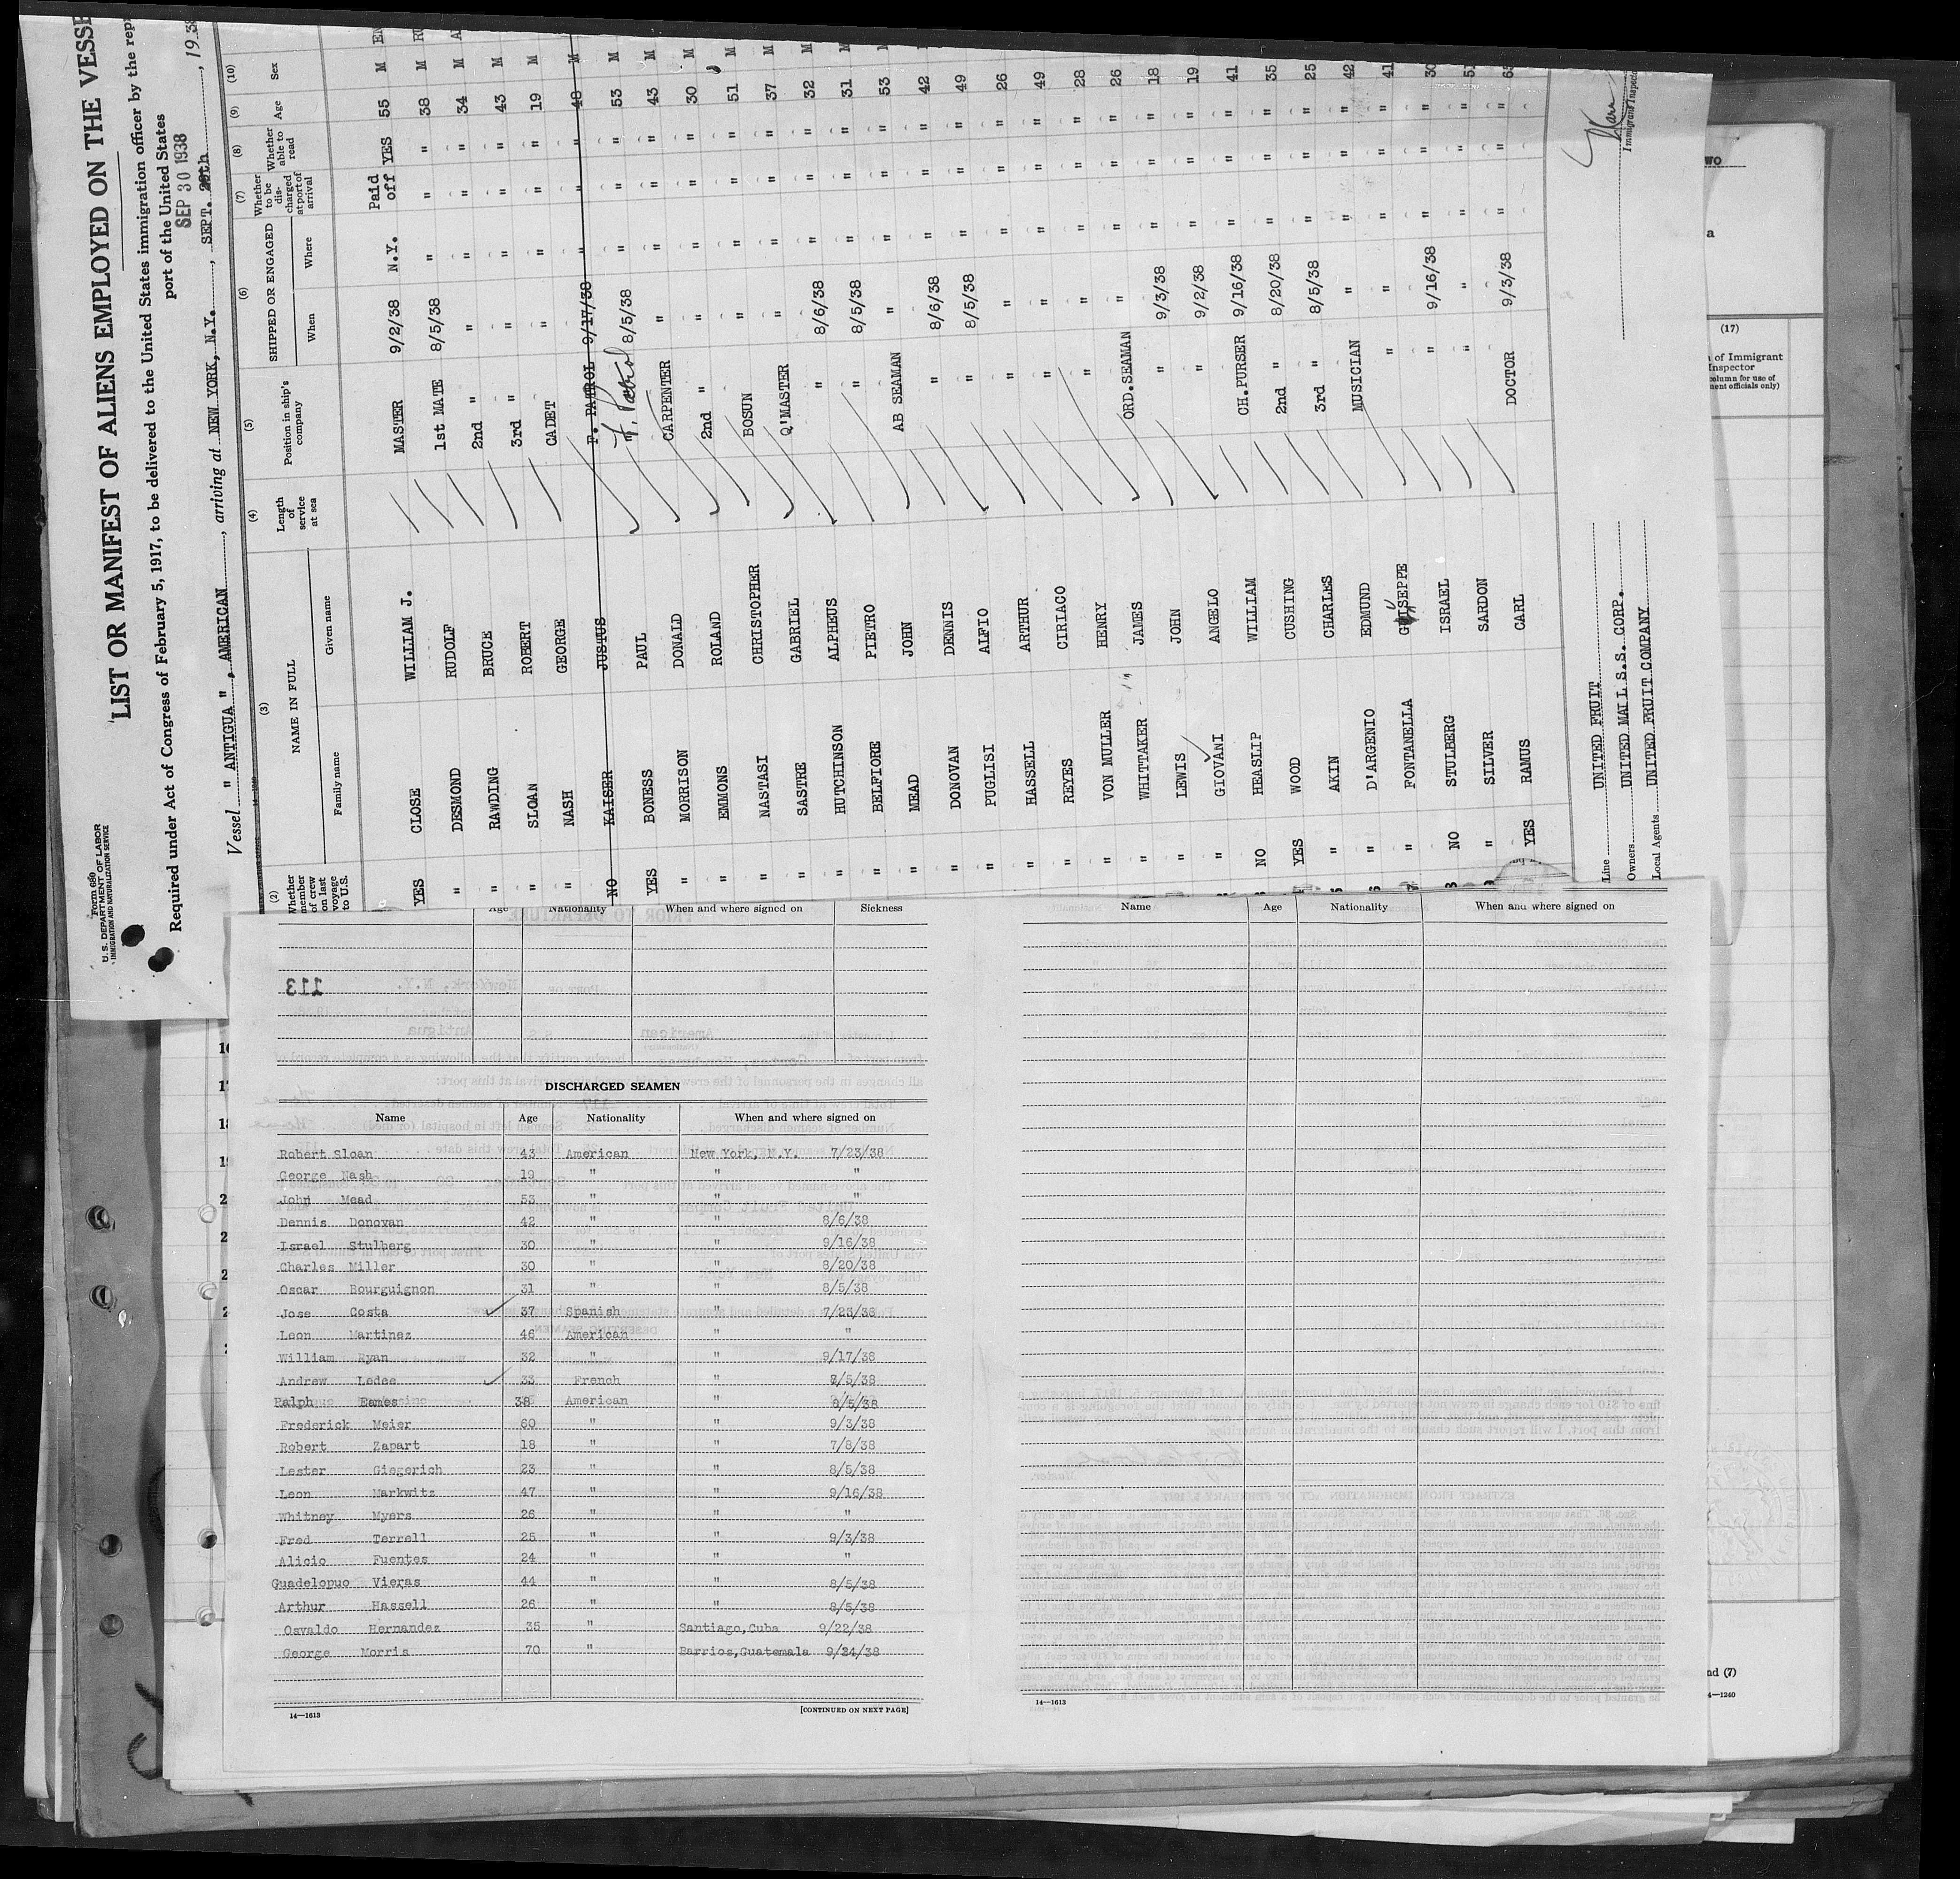 Form 680
U. S. DEPARTMENT OF LABOR
IMMIGRATION AND NATURALIZATION SERVICE
LIST OR MANIFEST OF ALIENS EMPLOYED ON THE VESSE
Required under Act of Congress of February 5, 1917, to be delivered to the United States immigration officer by the rep
port of the United States
SEP 30 1938
Vessel " ANTIGUA ", AMERICAN, arriving at NEW YORK, N.Y., SEPT. 29th, 1938
(2) (3) (4) (5) (6) (7) (8) (9) (10)
Whether member of crew on last voyage to U.S. NAME IN FULL Length of service at sea Position in ship's company SHIPPED OR ENGAGED Whether to be discharged at port of arrival Whether able to read Age Sex
Family name Given name When Where
YES CLOSE WILLIAM J. MASTER 9/2/38 N.Y. Paid off YES 55 M EN
" DESMOND RUDOLF 1st MATE 8/5/38 " " " 38 M RU
" RAWDING BRUCE 2nd " " " " " 34 M
" SLOAN ROBERT 3rd " " " " " 43 M
" NASH GEORGE CADET " " " " 19 M
NO KAISER JUSTUS P. PATROL 9/17/38 " " " 48 M
YES BONESS PAUL F. Patrol 8/5/38 " " " 53 M
" MORRISON DONALD CARPENTER " " " " 43 M
" EMMONS ROLAND 2nd " " " " " 30 M
" NASTASI CHRISTOPHER BOSUN " " " " 51 M
" SASTRE GABRIEL Q'MASTER " " " " 37 M
" HUTCHINSON ALPHEUS " 8/6/38 " " " 32 M
" BELFIORE PIETRO " 8/5/38 " " " 31 M
" MEAD JOHN AB SEAMAN " " " " 53 M
" DONOVAN DENNIS " 8/6/38 " " " 42
" PUGLISI ALFIO " 8/5/38 " " " 49
" HASSELL ARTHUR " " " " " 26
" REYES CIRIACO " " " " " 49
" VON MULLER HENRY " " " " " 28
" WHITTAKER JAMES ORD.SEAMAN " " " " 26
" LEWIS JOHN " 9/3/38 " " " 18
" GIOVANI ANGELO " 9/2/38 " " " 19
NO HEASLIP WILLIAM CH.PURSER 9/16/38 " " " 41
YES WOOD CUSHING 2nd " 8/20/38 " " " 35
" AKIN CHARLES 3rd " 8/5/38 " " " 25
" D'ARGENIO EDMUND MUSICIAN " " " " 42
" FONTANELLA GUISEPPE " " " " " 41
NO STULBERG ISRAEL " 9/16/38 " " " 30
" SILVER SARDON " " " " " 51
YES RAMUS CARL DOCTOR 9/3/38 " " " 65
Line UNITED FRUIT
Owners UNITED MAIL S.S. CORP.
Local Agents UNITED FRUIT COMPANY
Immigrant Inspector
(17)
of Immigrant
Inspector
column for use of
ment officials only)
nd (7)
4—1240
Age Nationality When and where signed on Sickness
DISCHARGED SEAMEN
Name Age Nationality When and where signed on
Robert Sloan 43 American New York, N.Y. 7/23/38
George Nash 19 " " "
John Mead 53 " " "
Dennis Donovan 42 " " 8/6/38
Israel Stulberg 30 " " 9/16/38
Charles Miller 30 " " 8/20/38
Oscar Bourguignon 31 " " 8/5/38
Jose Costa 37 Spanish " 7/23/38
Leon Martinez 46 American " "
William Ryan 32 " " 9/17/38
Andrew Ledee 33 French " 8/5/38
Ralph Eames 38 American " 8/5/38
Frederick Meier 60 " " 9/3/38
Robert Zapart 18 " " 7/8/38
Lester Giegerich 23 " " 8/5/38
Leon Markwitz 47 " " 9/16/38
Whitney Myers 26 " " "
Fred Terrell 25 " " 9/3/38
Alicio Fuentes 24 " " "
Guadelopuo Vieras 44 " " 8/5/38
Arthur Hassell 26 " " 8/5/38
Osvaldo Hernandez 35 " Santiago,Cuba 9/22/38
George Morris 70 " Barrios,Guatemala 9/24/38
14—1613 [CONTINUED ON NEXT PAGE]
Name Age Nationality When and where signed on
14—1613